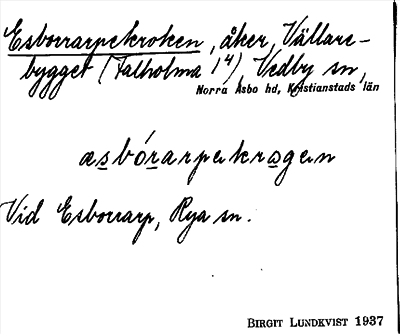 Esborrarpekroken, åker, Vällare-
bygget (Falholma 1⁴), Vedby sn,
Norra Åsbo hd, Kristianstads län
æsbórarpekrogen
Vid Esborrarp, Rya sn.
BIRGIT LUNDKVIST 1937